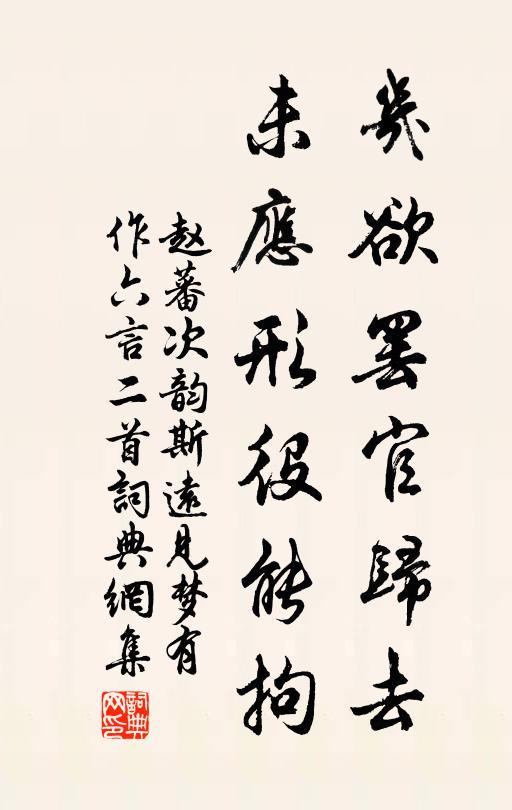 幾欲罢官歸去
未應形役能拘
赵蕃次韵斯遠見梦有
作六言二首詞典網集
詞典
网印